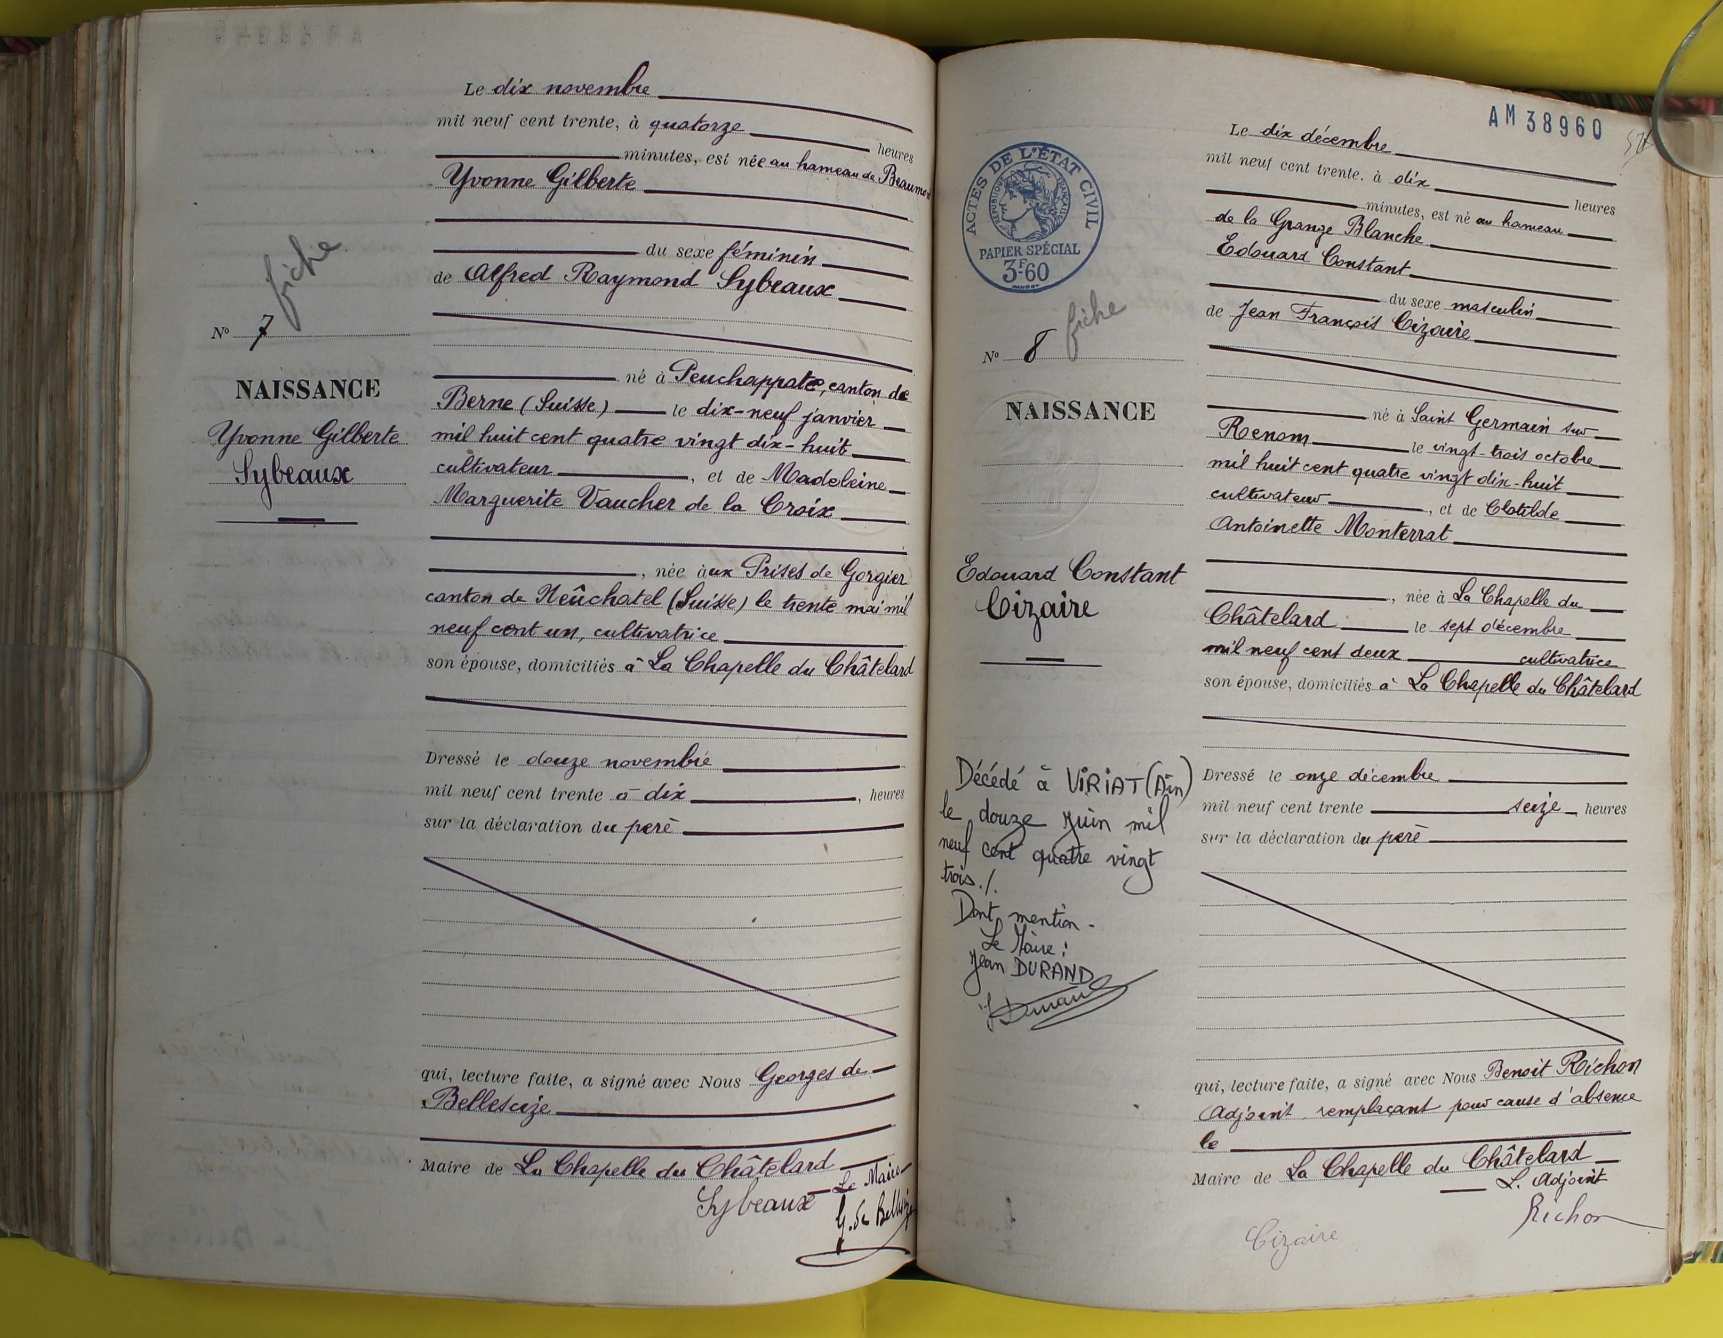 Le dix novembre
mil neuf cent trente, à quatorze heures
minutes, est née au hameau de Beaumont
Yvonne Gilberte
du sexe féminin
de Alfred Raymond Sybeaux
fiche
N° 7
NAISSANCE
Yvonne Gilberte
Sybeaux
né à Peuchappate, canton de
Berne (Suisse) le dix-neuf janvier
mil huit cent quatre vingt dix-huit
cultivateur, et de Madeleine
Marguerite Vaucher de la Croix
, née aux Prises de Gorgier
canton de Neûchatel (Suisse) le trente mai mil
neuf cent un, cultivatrice
son épouse, domiciliés à La Chapelle du Châtelard
Dressé le douze novembre
mil neuf cent trente à dix, heures
sur la déclaration du père
qui, lecture faite, a signé avec Nous Georges de
Bellescize
Maire de La Chapelle du Châtelard
Le Maire
Sybeaux
G. de Bellescize
AM38960
ACTES DE L'ÉTAT CIVIL
RÉPUBLIQUE FRANÇAISE
PAPIER SPÉCIAL
3F60
Le dix décembre
mil neuf cent trente. à dix heures
minutes, est né au hameau
de la Grange Blanche
Edouard Constant
du sexe masculin
de Jean François Cizaire
fiche
N° 8
NAISSANCE
Edouard Constant
Cizaire
né à Saint Germain sur
Renom le vingt-trois octobre
mil huit cent quatre vingt dix-huit
cultivateur, et de Clotilde
Antoinette Monterrat
, née à La Chapelle du
Châtelard le sept décembre
mil neuf cent deux cultivatrice
son épouse, domiciliés à La Chapelle du Châtelard
Décédé à VIRIAT (Ain)
le douze Juin mil
neuf cent quatre vingt
trois ./.
Dont mention -
Le Maire :
Jean DURAND
J Durand
Dressé le onze décembre
mil neuf cent trente seize heures
sur la déclaration du père
qui, lecture faite, a signé avec Nous Benoit Richon
Adjoint remplaçant pour cause d'absence
le
Maire de La Chapelle du Châtelard
L. Adjoint
Richon
Cizaire